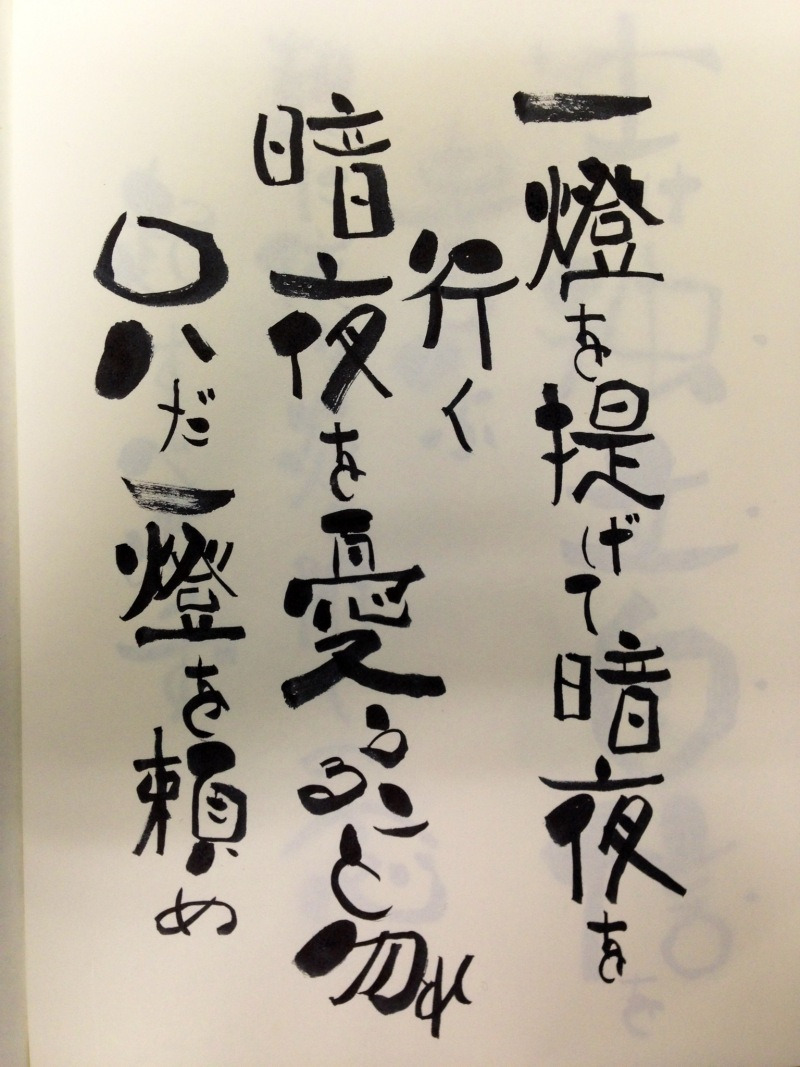 一燈を提げて暗夜を
行く
暗夜を憂ふること勿れ
只だ一燈を頼め